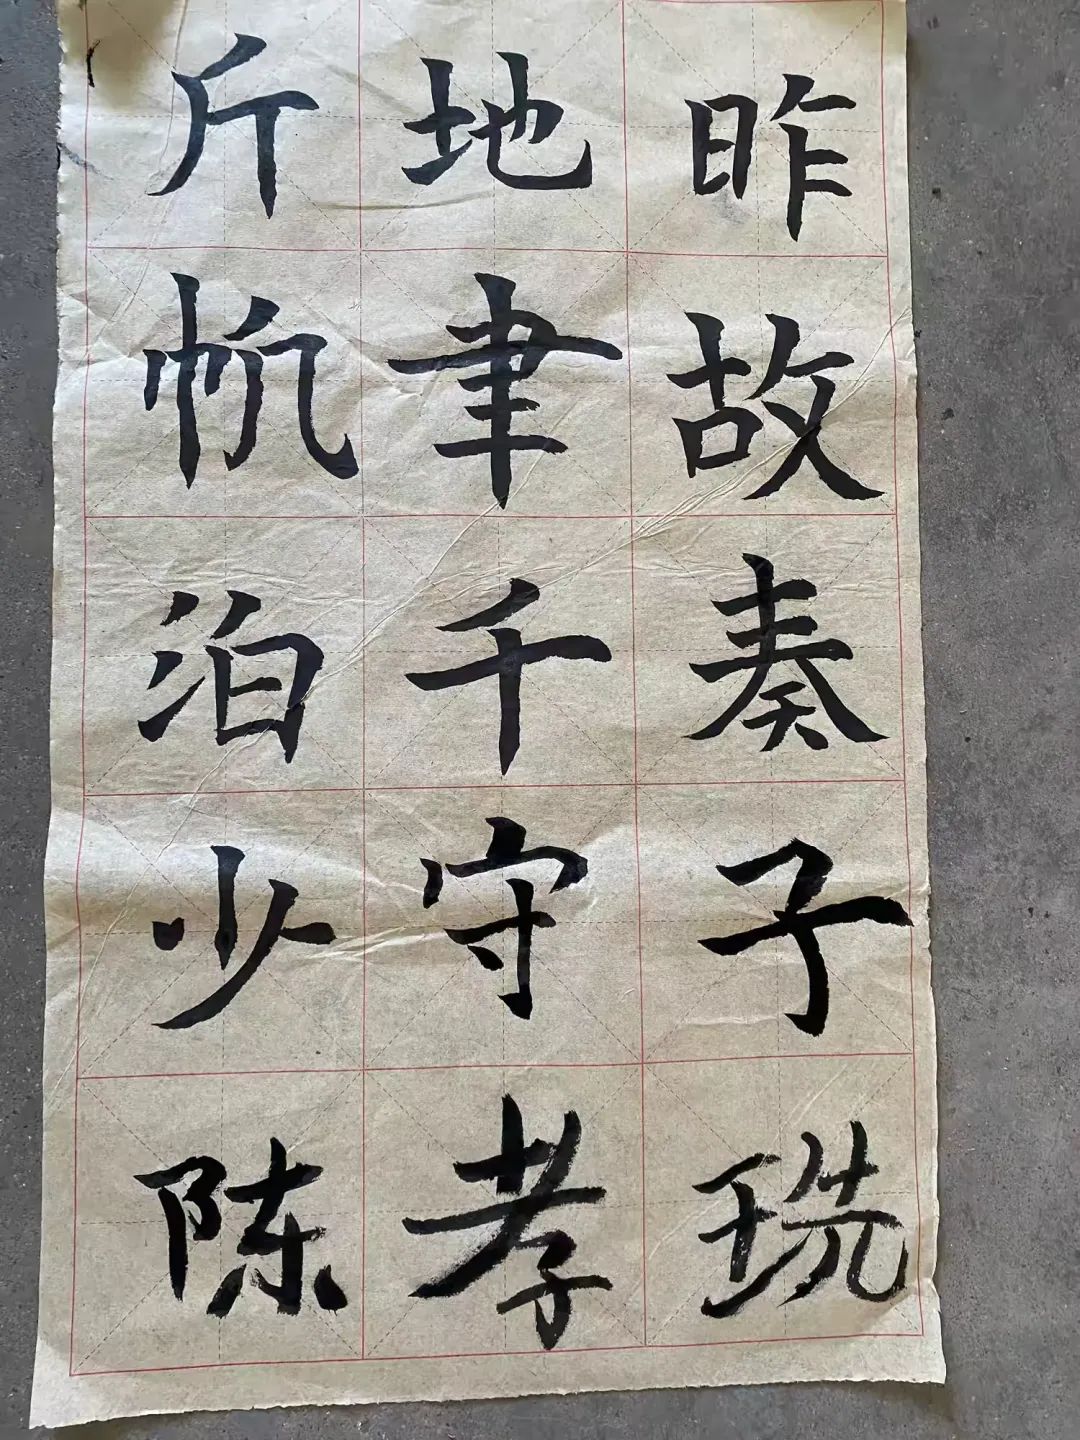 斤地昨
帆聿故
泊千奏
少守子
陈孝珗